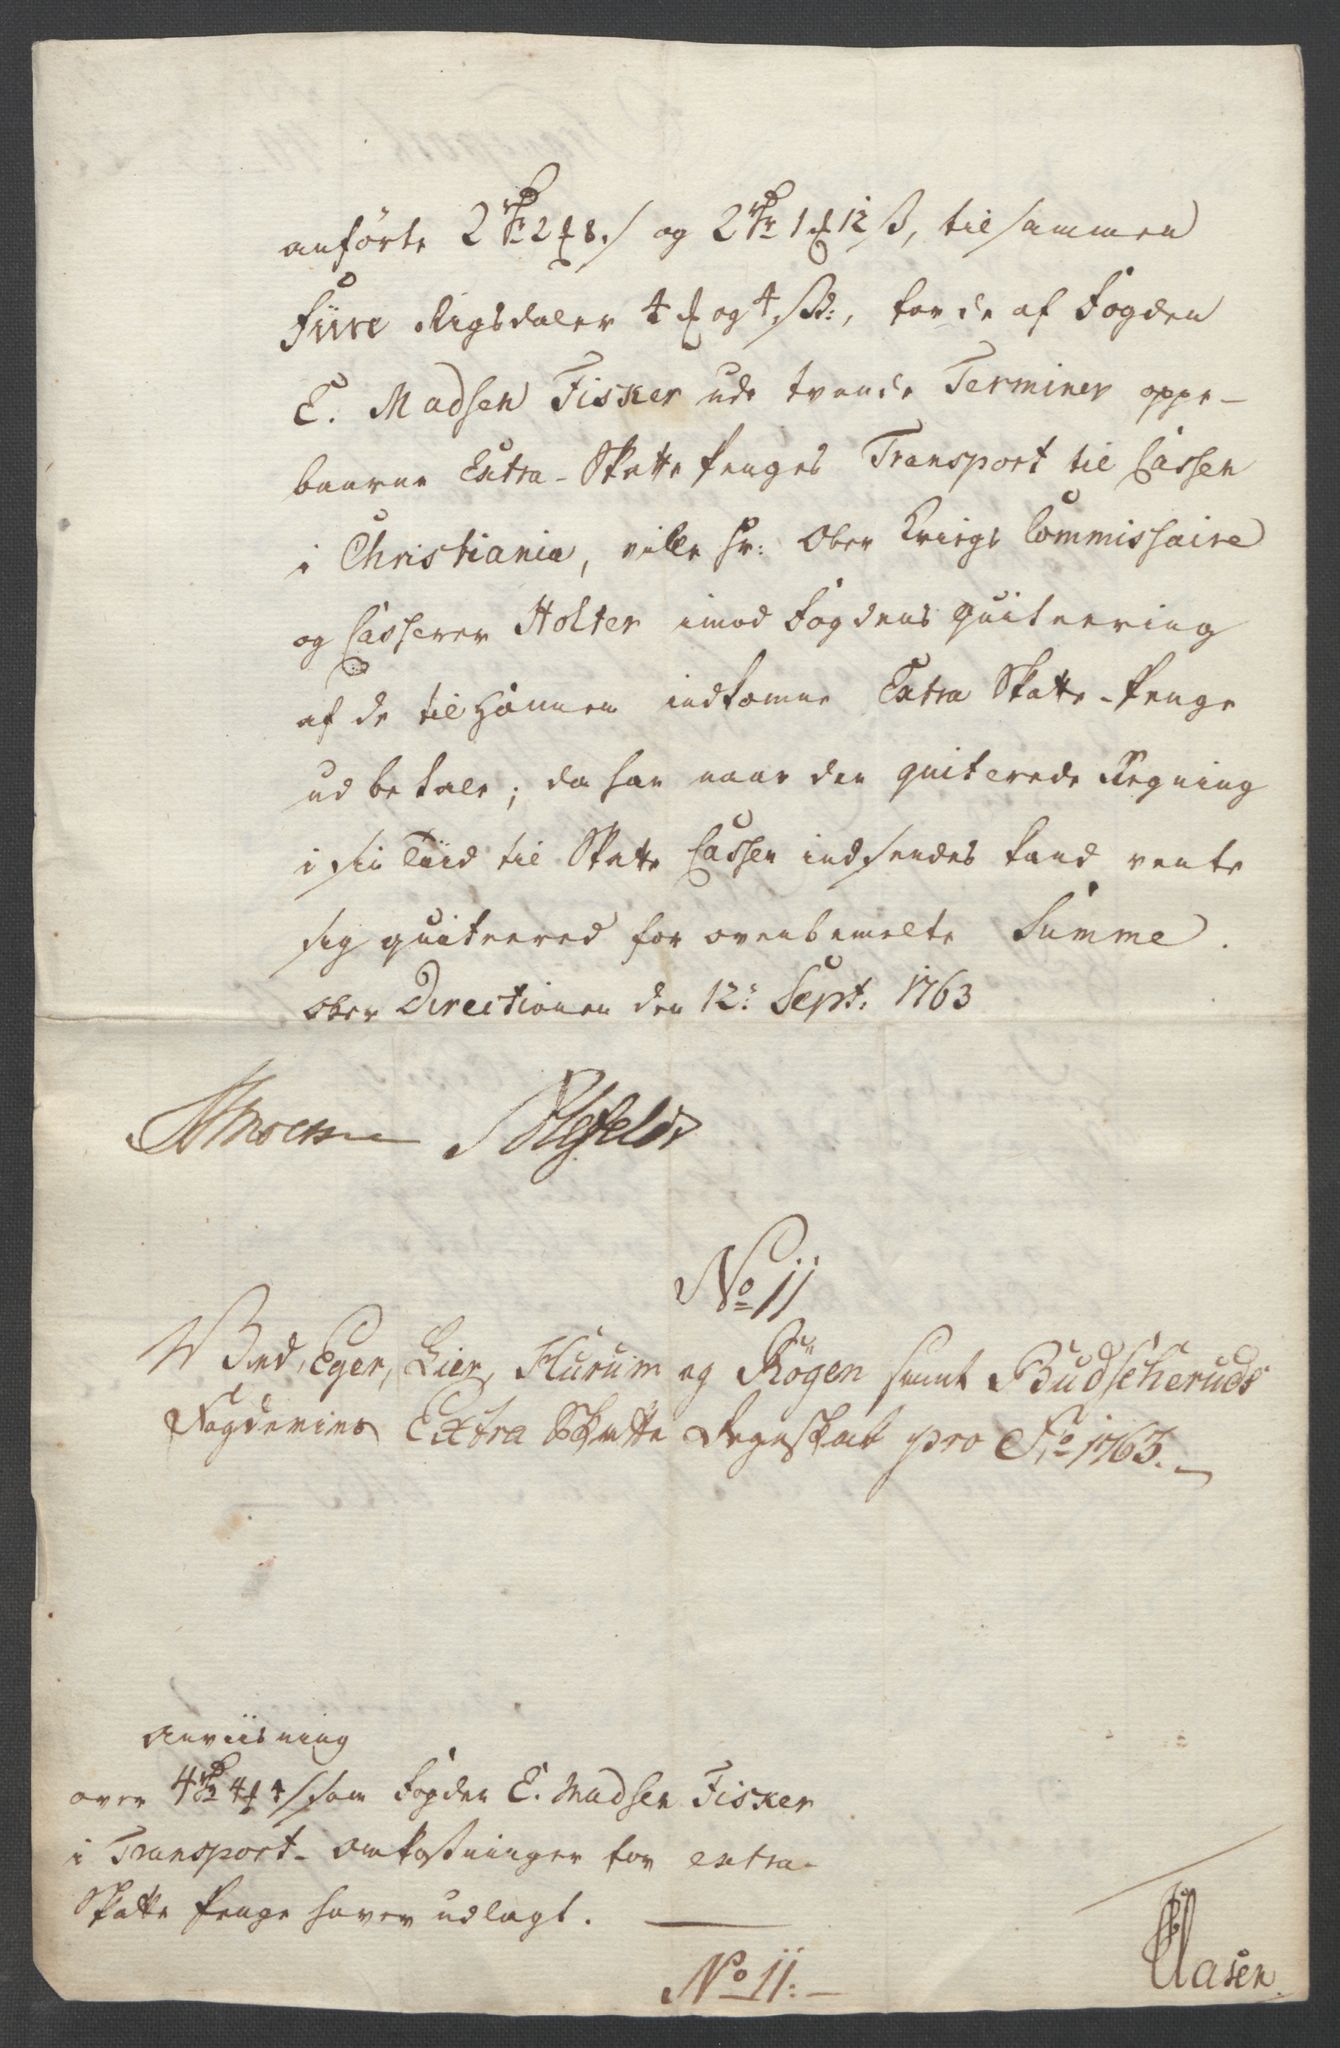 anførte 2 Rdr 2 ꝑ 8 s og 2 Rdr 1 ꝑ 12 s, tilsammen
Fiire Rigsdaler 4 ꝑ og 4 s:, for de af Fogden
E. Madsen Fisker udi tvende Terminer oppe-
baarne Extra-Skatte Penges Transport til Cassen
i Christiania, ville Hr: Ober Krigs Commissaire
og Casserer Holter imod Fogdens quiteering
af de til Hannem indkomne Extra Skatte-Penge
udbetale; da han naar den quiterede Regning
i sin Tiid til Skatte Cassen indsendes kand vente
sig quiteered for ovenbemelte Summe.
Ober Directionen den 12: Sept: 1763
No 11
Ved Eger, Lier, Hurum og Rögen samt Budscheruds
Fogderies Extra Skatte Regnskab pro Ao 1763.
Anviisning
over 4 Rdr 4 ꝑ 4 s som Fogden E. Madsen Fisker
i Transport-Omkostninger for extra-
Skatte Penge haver udlagt.
No 11: